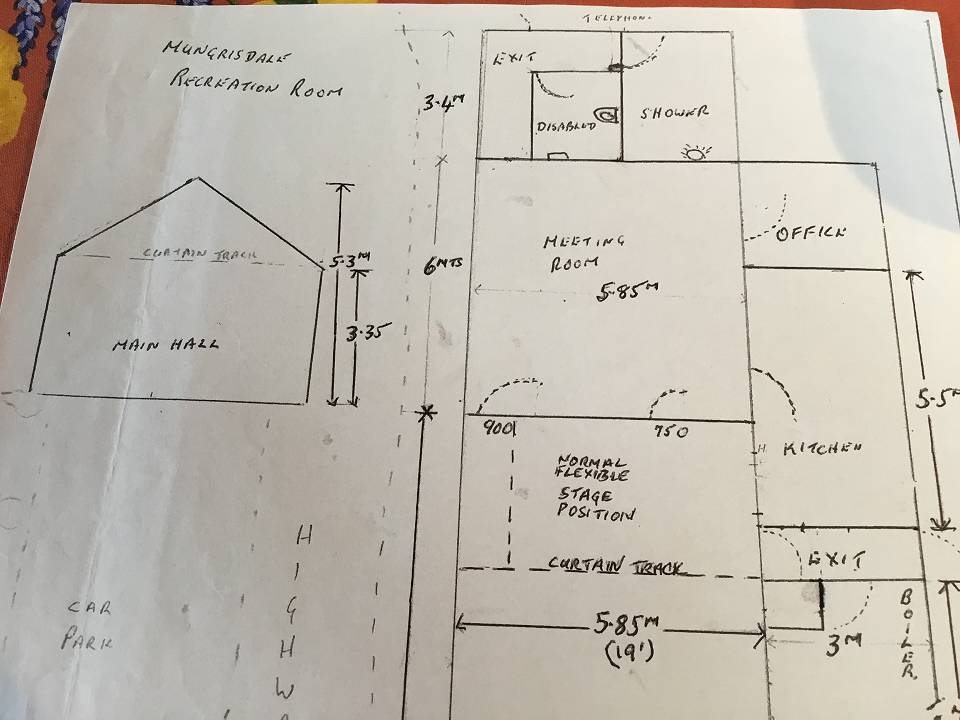 MUNGRISDALE
RECREATION ROOM
EXIT
3.4M
DISABLED
SHOWER
CURTAIN TRACK
5.3M
3.35
MAIN HALL
6MTS
MEETING
ROOM
5.85M
OFFICE
900
750
5.5M
KITCHEN
NORMAL
FLEXIBLE
STAGE
POSITION
CURTAIN TRACK
EXIT
5.85M
(19')
3M
BOILER
CAR
PARK
HIGHW